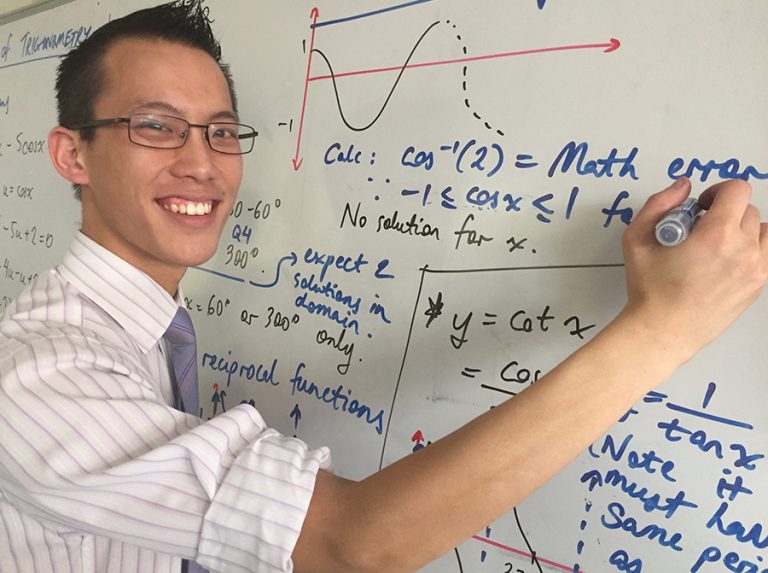 of TRIGONOMETRY
- 5cosx
u = cosx
- 5u + 2 = 0
1
-1
60-60°
Q4
300°
x = 60° or 300° only.
expect 2
solutions in
domain.
reciprocal functions
Calc: cos⁻¹(2) = Math error
∵ -1 ≤ cosx ≤ 1 fo
No solution for x.
* y = cot x
= cos
= 1
tanx
Note it
must have
same peri
as